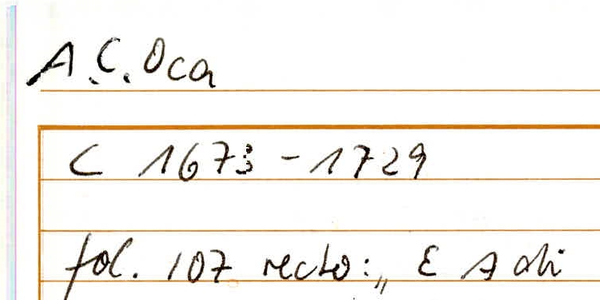 A.C. Oca
C 1673 - 1729
fol. 107 recto: „ E A di